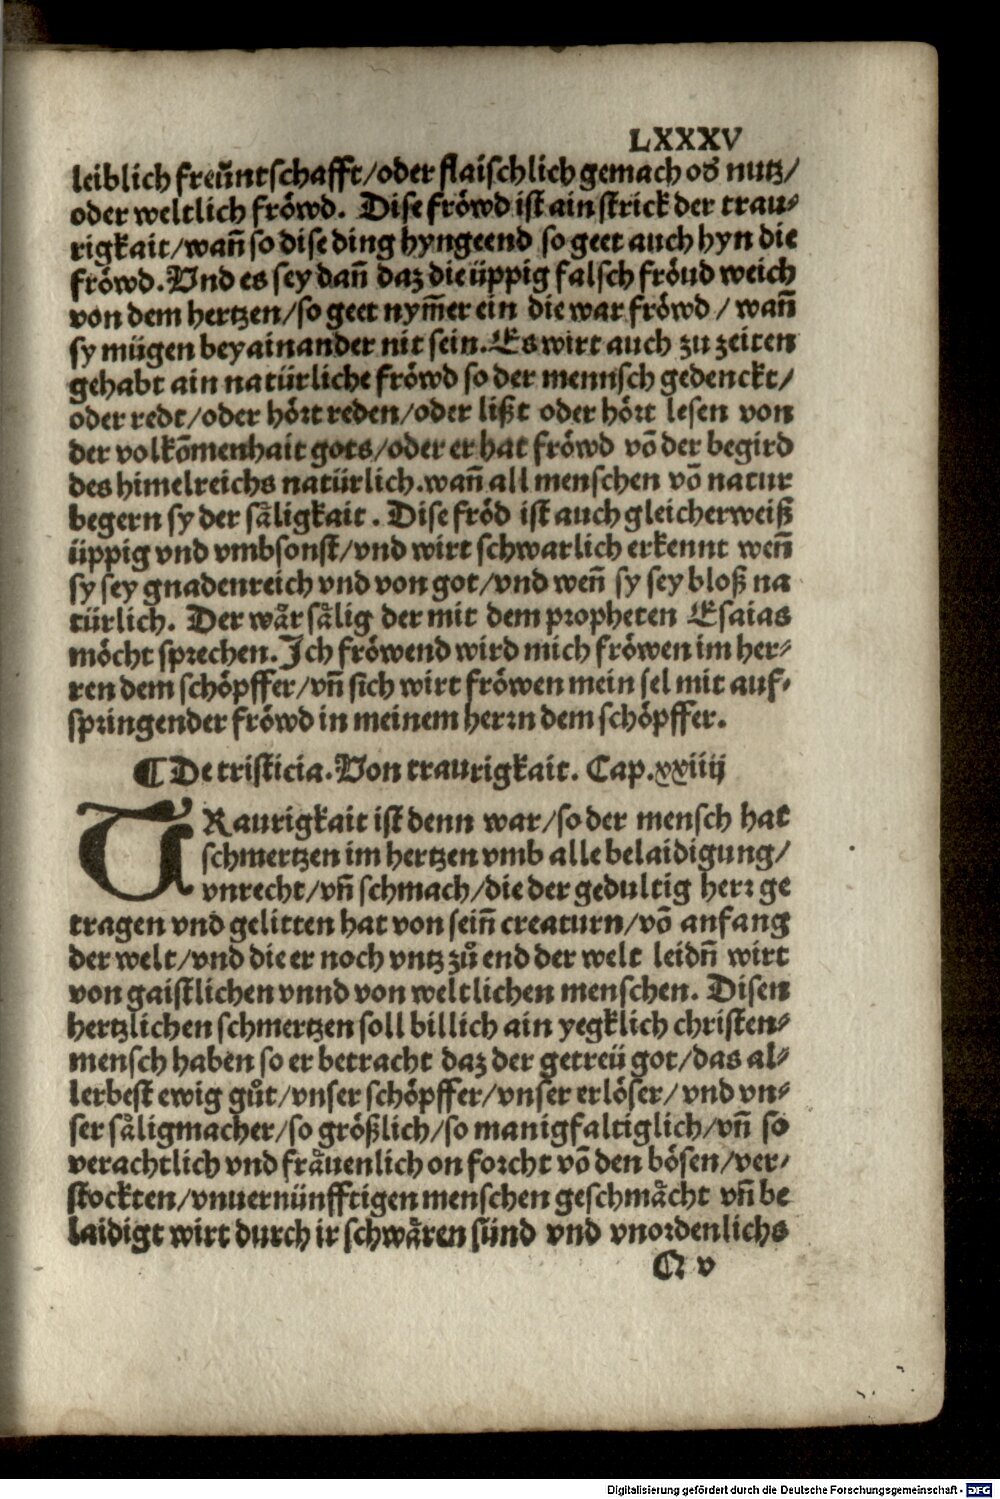 LXXXV
leiblich freüntschafft/oder flaischlich gemach od nutz/
oder weltlich fröwd. Dise fröwd ist ain strick der trau⸗
rigkait/wañ so dise ding hyngeend so geet auch hyn die
fröwd.Vnd es sey dañ daz die üppig falsch fröud weich
von dem hertzen/so geet nym̄er ein die war fröwd / wañ
sy mügen bey ainander nit sein.Es wirt auch zu zeiten
gehabt ain natürliche fröwd so der mennsch gedenckt/
oder redt/oder hört reden/oder lißt oder hört lesen von
der volkōmenhait gots/oder er hat fröwd vō der begird
des himelreichs natürlich.wañ all menschen vō natur
begern sy der säligkait . Dise fröd ist auch gleicherweiß
üppig vnd vmbsonst/vnd wirt schwarlich erkennt weñ
sy sey gnadenreich vnd von got/vnd weñ sy sey bloß na
türlich. Der wär sälig der mit dem propheten Esaias
möcht sprechen.Ich fröwend wird mich fröwen im her⸗
ren dem schöpffer/vñ sich wirt fröwen mein sel mit auf⸗
springender fröwd in meinem herrn dem schöpffer.
¶ De tristicia.Von traurigkait. Cap.xxiiij
TRaurigkait ist denn war/so der mensch hat
schmertzen im hertzen vmb alle belaidigung/
vnrecht/vñ schmach/die der gedultig herr ge
tragen vnd gelitten hat von seiñ creaturn/vō anfang
der welt/vnd die er noch vntz zů end der welt leidñ wirt
von gaistlichen vnnd von weltlichen menschen. Disen
hertzlichen schmertzen soll billich ain yegklich christen⸗
mensch haben so er betracht daz der getreü got/das al⸗
lerbest ewig gůt/vnser schöpffer/vnser erlöser/vnd vn⸗
ser säligmacher/so größlich/so manigfaltiglich/vñ so
verachtlich vnd fräuenlich on forcht vō den bösen/ver⸗
stockten/vnuernünfftigen menschen geschmächt vñ be
laidigt wirt durch ir schwären sünd vnd vnordenlichs
v
Digitalisierung gefördert durch die Deutsche Forschungsgemeinschaft - DFG